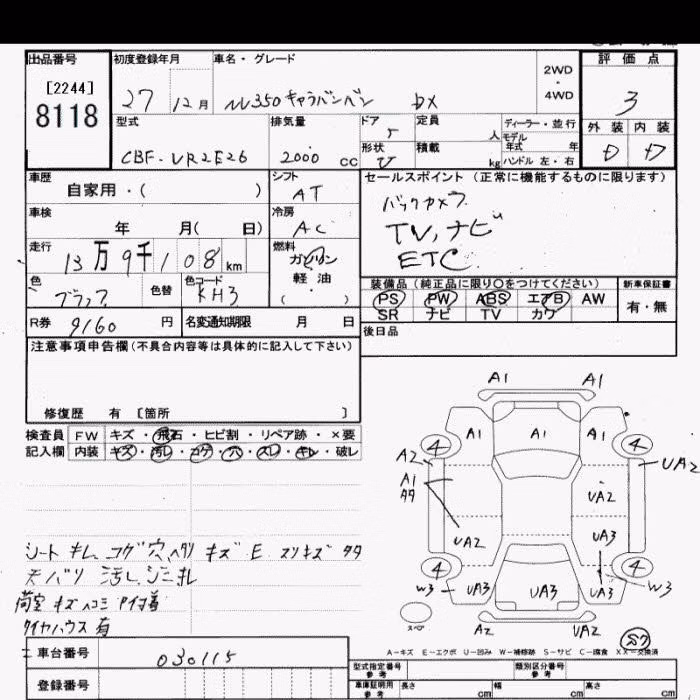 出品番号
[2244]
8118
初度登録年月
27 12月
車名・グレード
NV350キャラバンバン DX
2WD
・
4WD
評価点
3
外装 内装
D D
型式
CBF-VR2E26
排気量
2000 cc
ドア
5
定員
人
ディーラー・並行
モデル
年式 年
形状
V
積載
kg
ハンドル 左・右
車歴
自家用・( )
シフト
AT
セールスポイント(正常に機能するものに限ります)
バックカメラ
TV,ナビ
ETC
車検
年 月( 日)
冷房
AC
走行
13万9千108km
燃料
ガソリン
軽油
( ・ )
色
ブラック
色替
色コード
KH3
装備品(純正品に限り○をつけてください)
新車保証書
PS PW ABS エアB AW
SR ナビ TV カワ
有・無
R券 9160 円
名変通知期限 月 日
後日品
注意事項申告欄(不具合内容等は具体的に記入して下さい)
修復歴 有 [箇所 ]
検査員
記入欄
FW キズ・飛石・ヒビ割・リペア跡・×要
内装 キズ・汚レ・コゲ・穴・スレ・キレ・破レ
シート キレ コゲ穴 ヘタリ キズ E スリキズ タタ
天バリ 汚レ シミ キレ
荷室 キズ ヘコミ
タイヤハウス 有
A1 A1
A1 A1 A1
4 4
A2
A1
タタ
UA2
UA2
UA2
UA3
4 4
W3 UA3 UA3 UA3 W3
スペア
A2 UA2
A-キズ E-エクボ U-凹み W-補修跡 S-サビ C-腐食 XX-交換済
車台番号
030115
登録番号
型式指定番号
参考
類別区分番号
参考
車庫証明用
参考
長さ cm
幅 cm
高さ cm